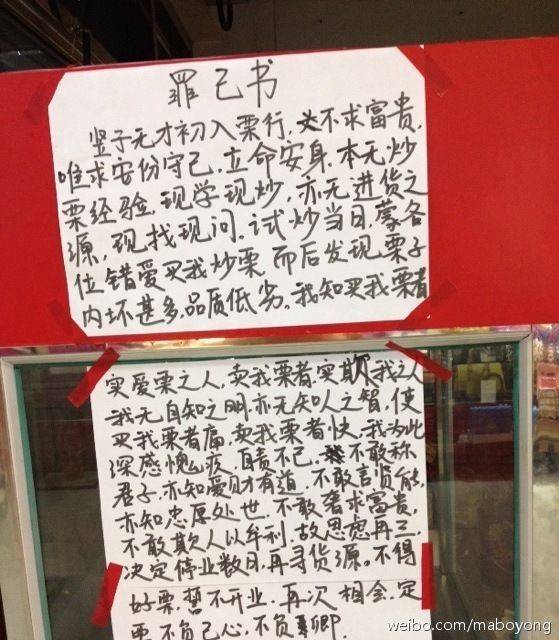 罪己书
竖子无才初入栗行,不求富贵,
唯求安份守己,立命安身,本无炒
栗经验,现学现炒,亦无进货之
源,现找现问。试炒当日,蒙各
位错爱买我炒栗,而后发现栗子
内坏甚多,品质低劣。我知买我栗者
实爱栗之人,卖我栗者,实欺我之人
我无自知之明,亦无知人之智,使
买我栗者痛,卖我栗者快,我为此
深感愧疚,自责不已,不敢称
君子,亦知爱财有道,不敢言贤能,
亦知忠厚处世,不敢奢求富贵,
不敢欺人以牟利,故思虑再三
决定停业数日,再寻货源。不得
好栗,誓不开业,再次相会,定
要不负己心,不负卿
weibo.com/maboyong